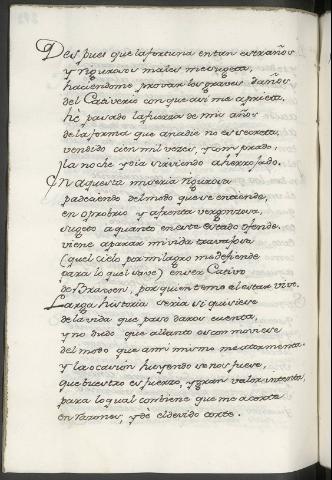 Despues que la fortuna en tan estraños
y rigurosos males me sugeta,
haciendome provar los graves daños
del Cativerio con que asi me aprieta,
hè pasado la fuerza de mis años
de la forma que a nadie no es secreta,
vendido cien mil vezes, y comprado,
y la noche y dia sirviendo aherrojado.
En aquesta miseria rigurosa
padeciendo del modo que se entiende,
en oprobrio y afrenta vergonzosa,
sugeto a quanto en este estado ofende.
viene a parar mi vida travajosa
(que el cielo por milagro me defiende
para lo que el save) en ser Cativo
de Bransen, por quien temo el estar vivo.
Larga historia seria si quisiese
de la vida que paso daros cuenta,
y no dudo que al llanto os conmoviese
del modo que a mi mismo me atormenta.
y la ocasion huyendo se nos fuese,
que buestro esfuerzo, y gran valor intenta,
para lo qual combiene que me acorte
en razones, y dè el devido corte.